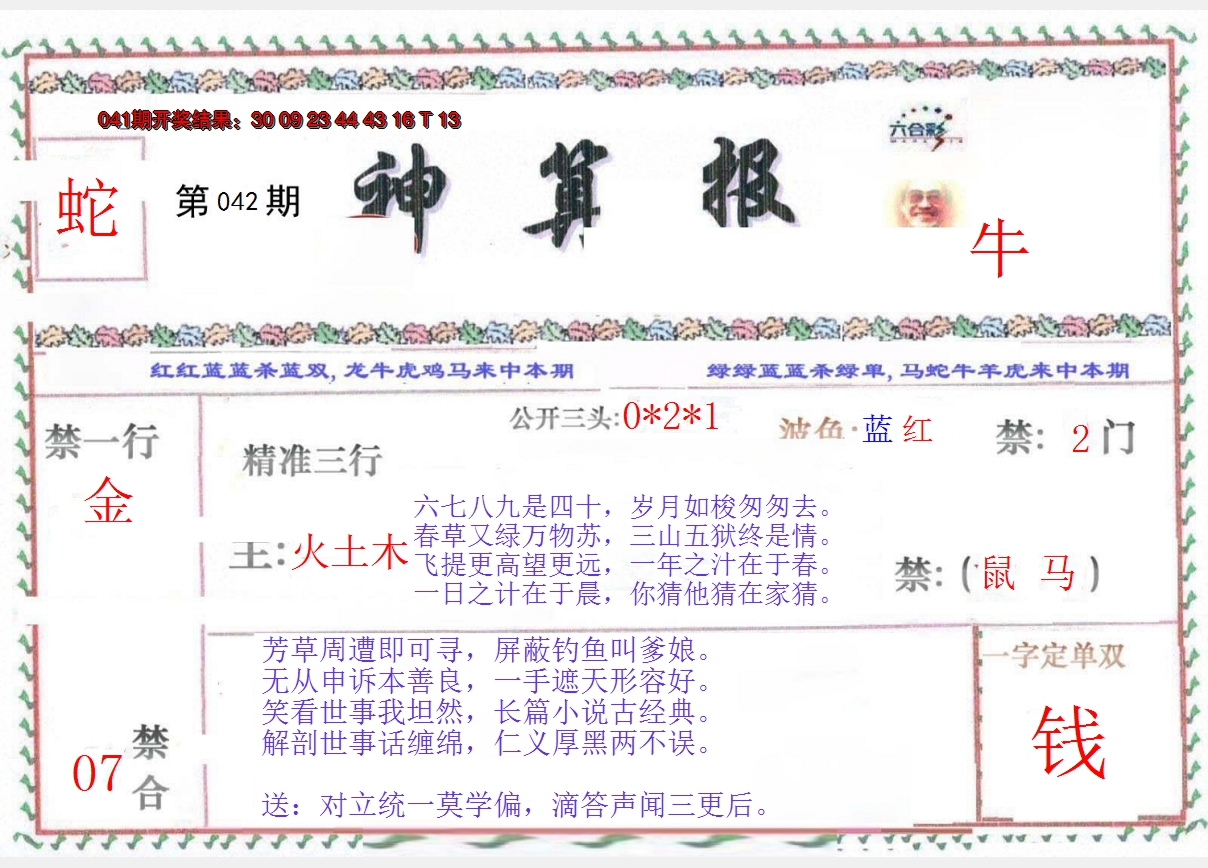 041期开奖结果：30 09 23 44 43 16 T 13
六合彩
蛇
第 042 期
神 算 报
牛
红红蓝蓝杀蓝双, 龙牛虎鸡马来中本期
绿绿蓝蓝杀绿单, 马蛇牛羊虎来中本期
禁一行
金
精准三行
主: 火土木
公开三头: 0*2*1
波色: 蓝 红
禁: 2 门
六七八九是四十，岁月如梭匆匆去。
春草又绿万物苏，三山五狱终是情。
飞提更高望更远，一年之汁在于春。
一日之计在于晨，你猜他猜在家猜。
禁: ( 鼠 马 )
07 禁合
芳草周遭即可寻，屏蔽钓鱼叫爹娘。
无从申诉本善良，一手遮天形容好。
笑看世事我坦然，长篇小说古经典。
解剖世事话缠绵，仁义厚黑两不误。
送：对立统一莫学偏，滴答声闻三更后。
一字定单双
钱